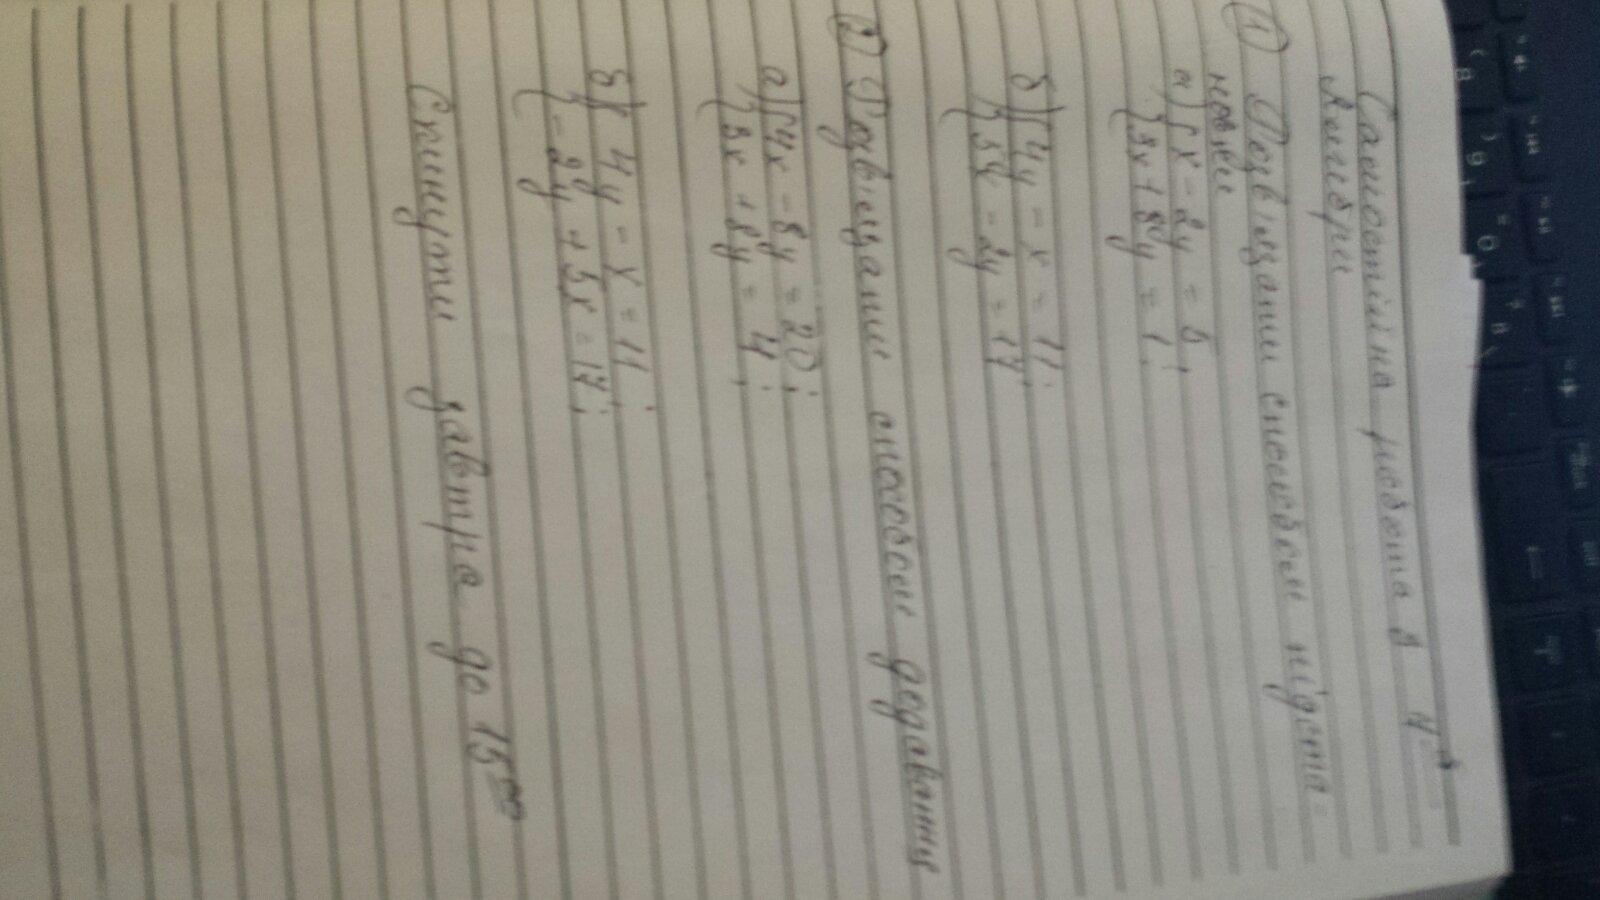 Самостійна робота в
Алгебри
① Розв'язати способом підста-
новки
а) { x - 2y = 5
{ 3x + 8y = 1;
б) { 4y - x = 11;
{ 5x - 2y = 17;
② Розв'язати способом додавання
а) { 4x - 8y = 20;
{ 3x + 8y = 4;
б) { 4y - x = 11;
{ - 2y + 5x = 17;
Скинути завтра до 15⁰⁰